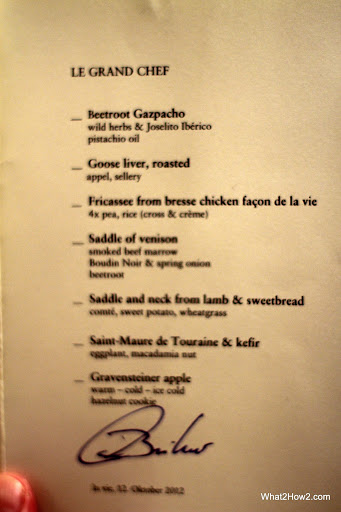 LE GRAND CHEF
Beetroot Gazpacho
wild herbs & Joselito Ibérico
pistachio oil
Goose liver, roasted
appel, sellery
Fricassee from bresse chicken façon de la vie
4x pea, rice (cross & crème)
Saddle of venison
smoked beef marrow
Boudin Noir & spring onion
beetroot
Saddle and neck from lamb & sweetbread
comté, sweet potato, wheatgrass
Saint-Maure de Touraine & kefir
eggplant, macadamia nut
Gravensteiner apple
warm – cold – ice cold
hazelnut cookie
la vie, 12. Oktober 2012
What2How2.com